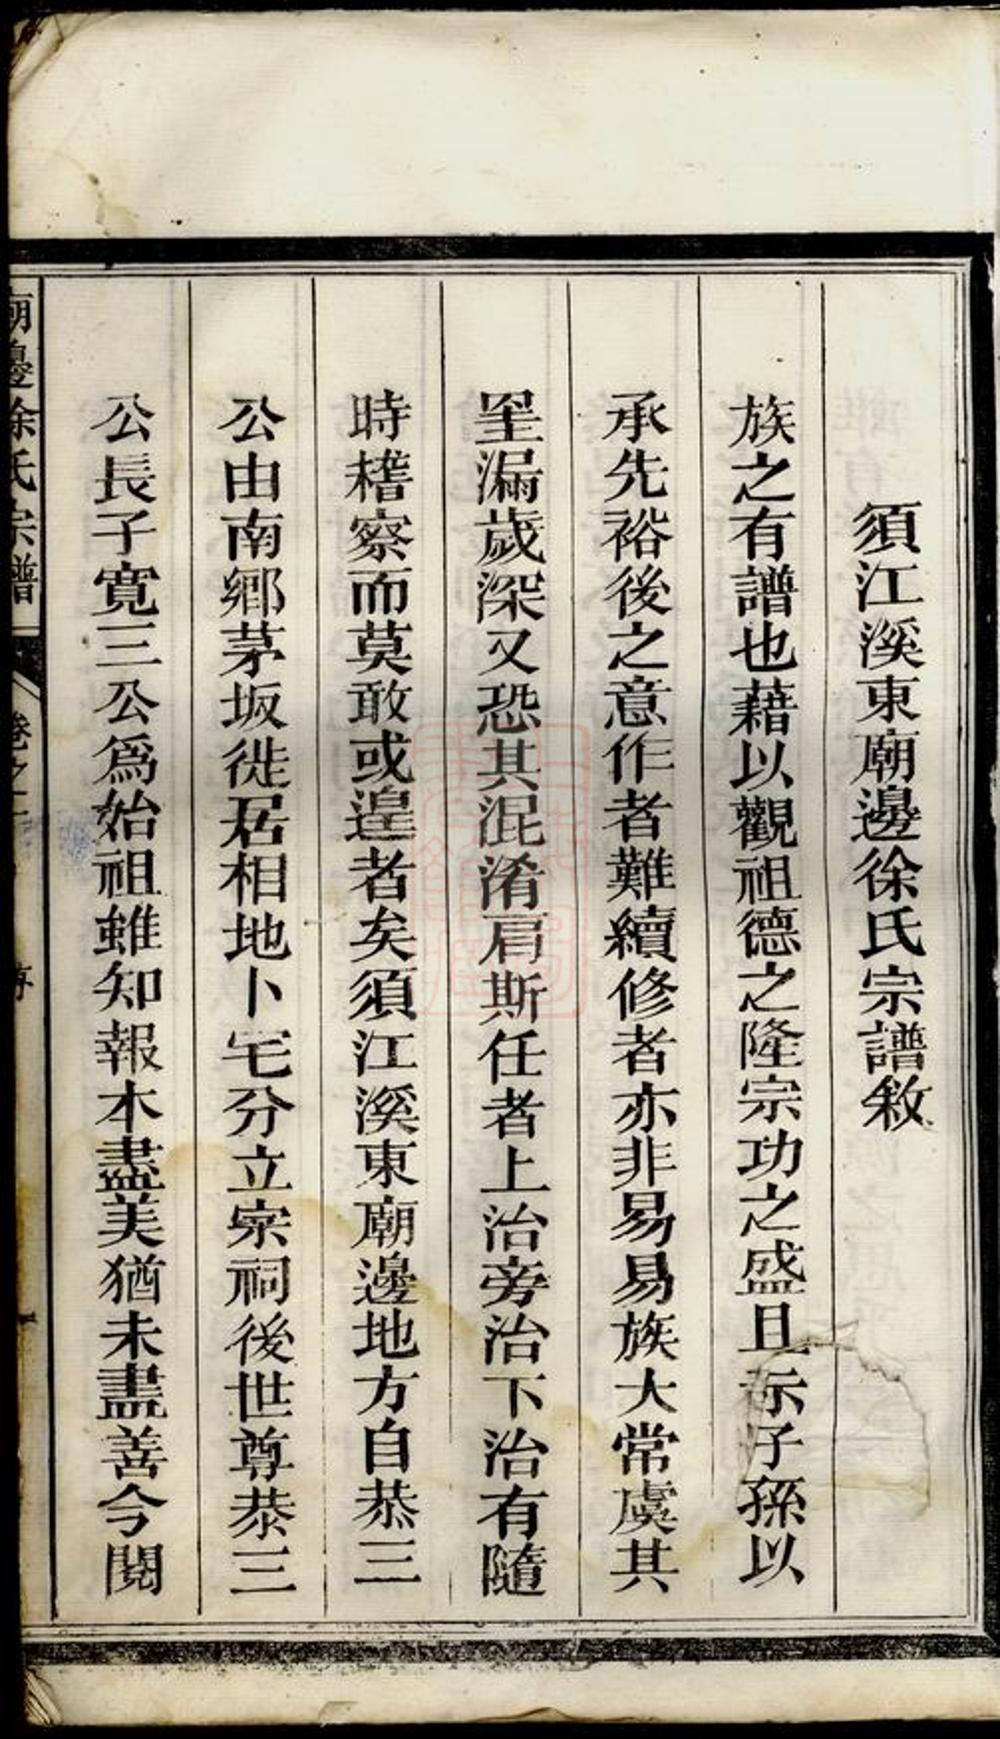 須江溪東廟邊徐氏宗譜敘
族之有譜也藉以觀祖德之隆宗功之盛且示子孫以
承先裕後之意作者難續修者亦非易易族大常虞其
罣漏歲深又恐其混淆肩斯任者上治旁治下治有隨
時稽察而莫敢或遑者矣須江溪東廟邊地方自恭三
公由南鄉茅坂徙居相地卜宅分立宗祠後世尊恭三
公長子寬三公爲始祖雖知報本盡美猶未盡善今閱
廟邊徐氏宗譜 卷之一 序 一